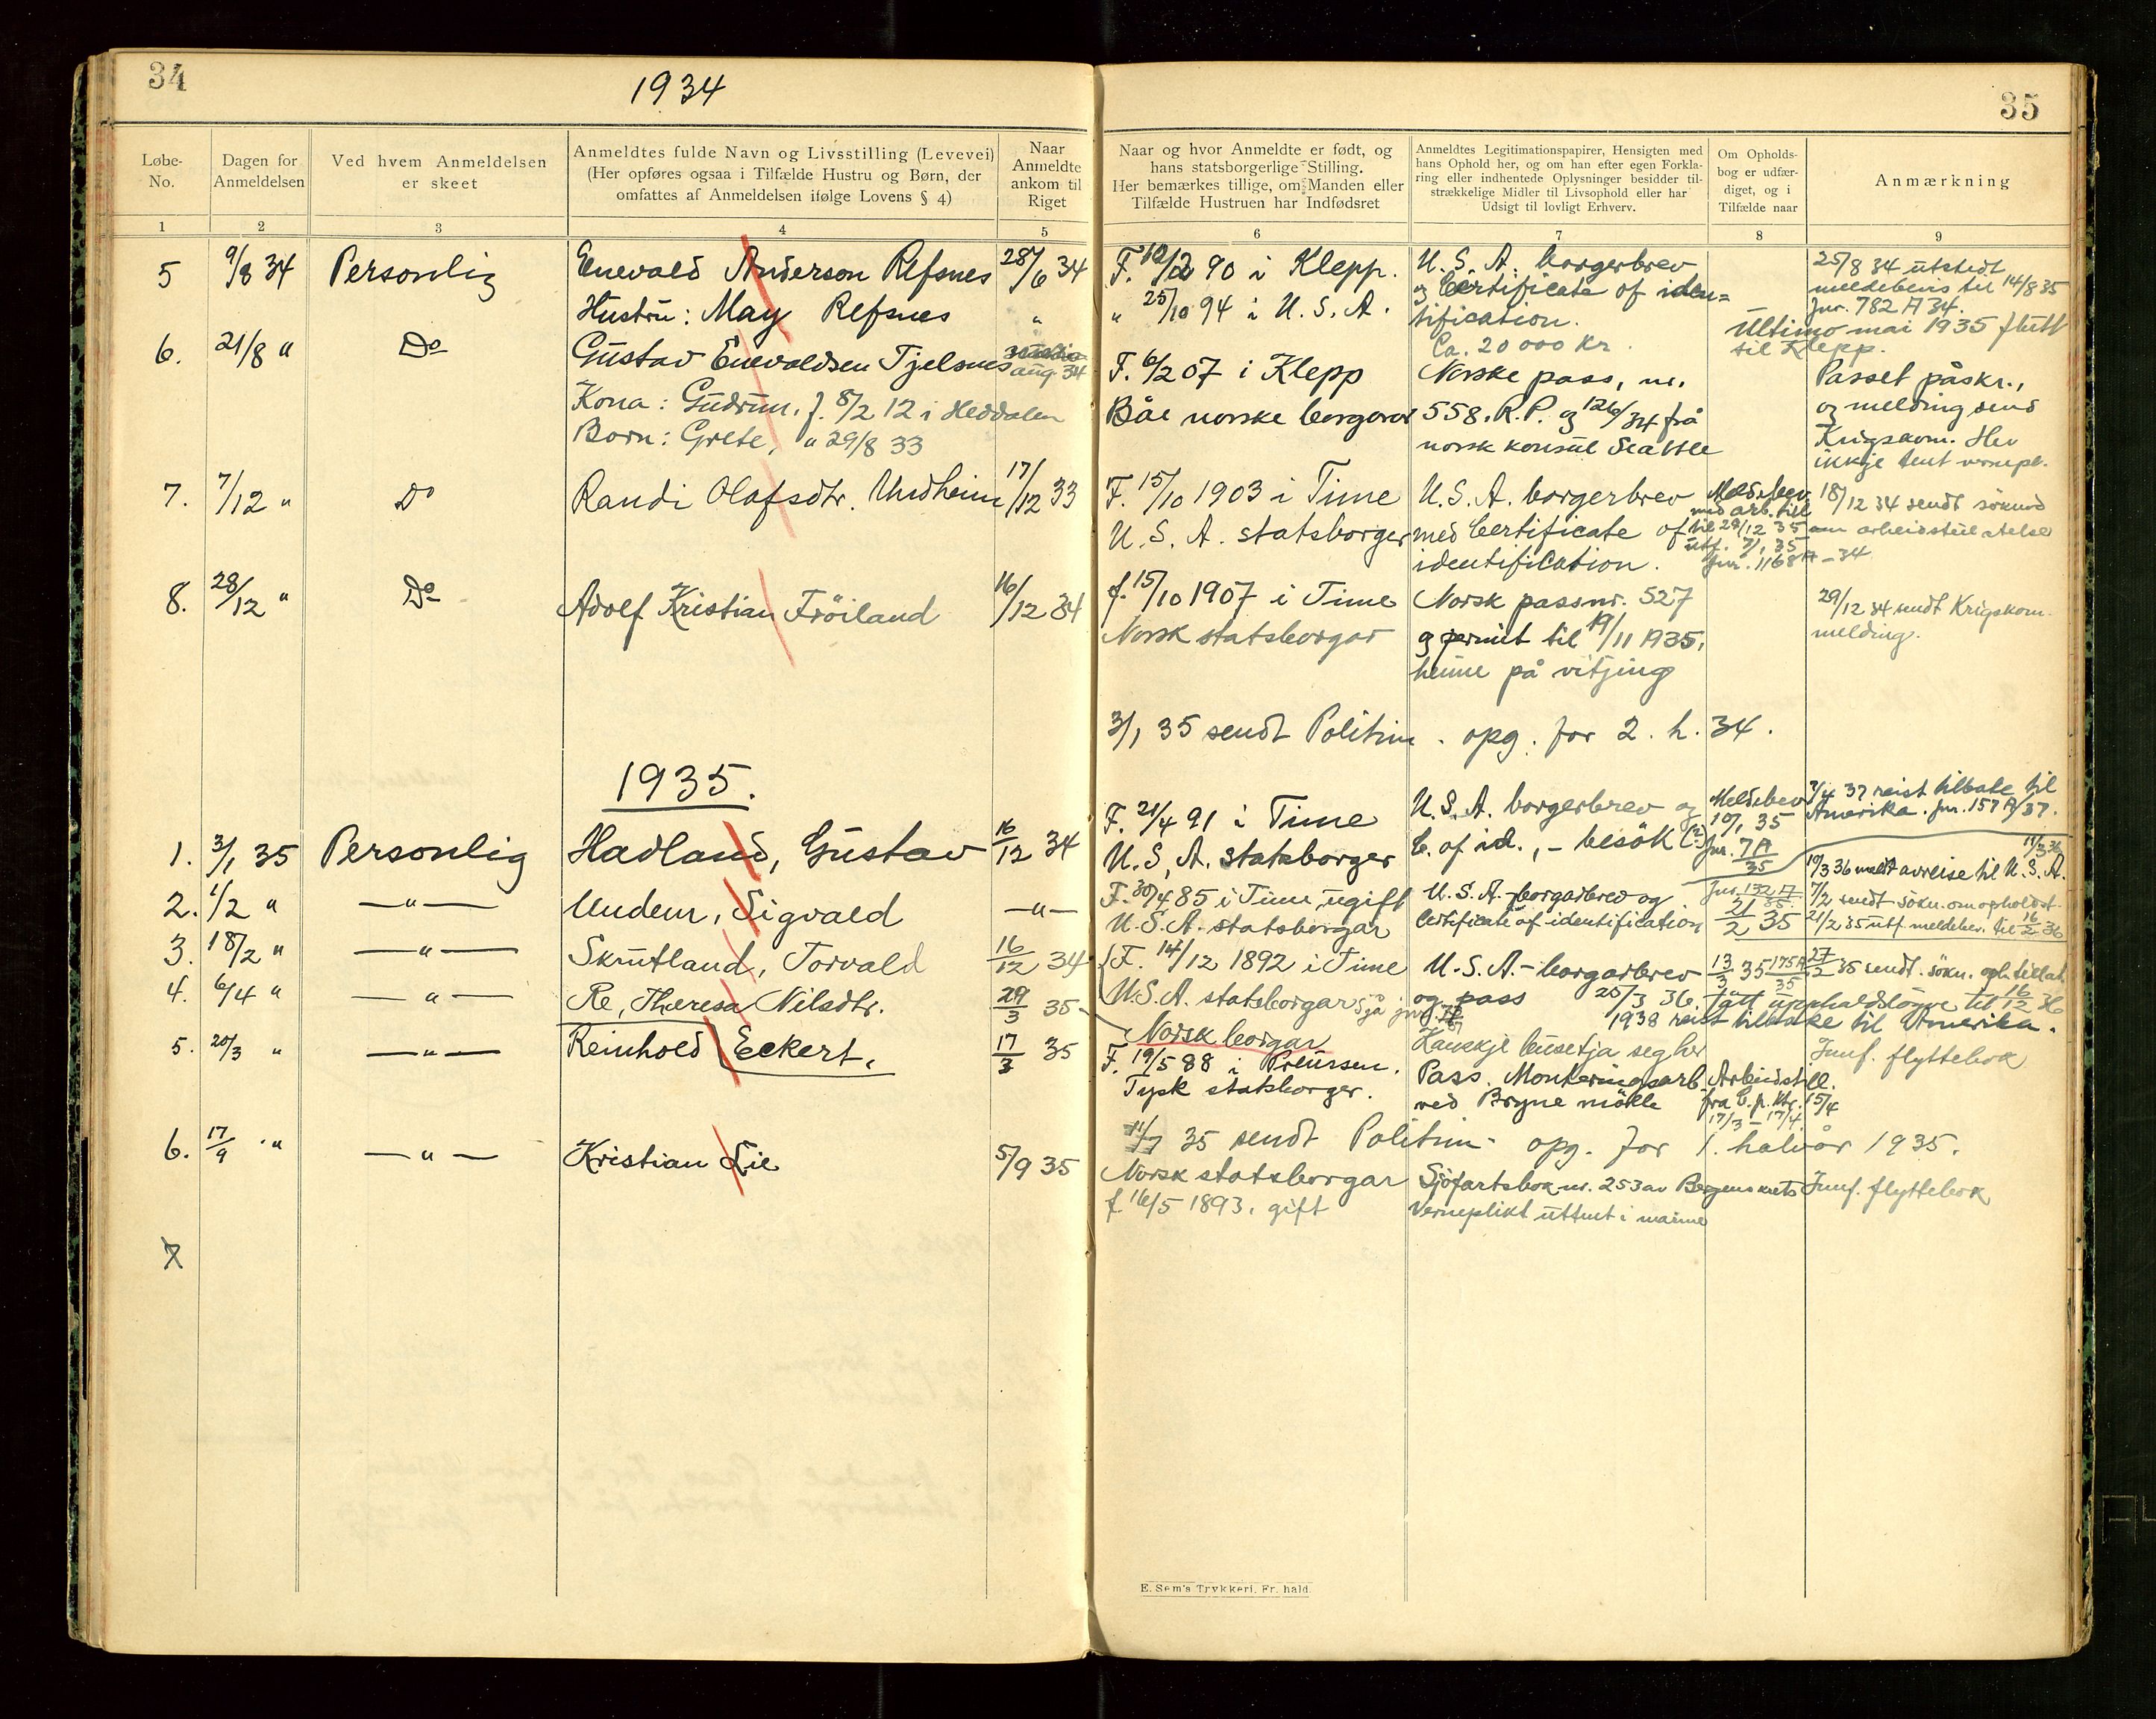 34
1934
Løbe-
No.
Dagen for
Anmeldelsen
Ved hvem Anmeldelsen
er skeet
Anmeldtes fulde Navn og Livsstilling (Levevei)
(Her opføres ogsaa i Tilfælde Hustru og Børn, der
omfattes af Anmeldelsen ifølge Lovens § 4)
Naar
Anmeldte
ankom til
Riget
1
2
3
4
5
5 9/8 34 Personlig Enevald Anderson Refsnes 28/6 34
Hustru: May Refsnes "
6. 21/8 " Do Gustav Enevaldsen Tjelsnes
aug. 34
Kona: Gudrun, f. 8/2 12 i Heddalen
Born: Grete, " 29/8 33
7. 7/12 " Do Randi Olafsdtr. Undheim 17/12 33
8. 28/12 " Do Adolf Kristian Fröiland 16/12 34
1935.
1. 3/1 35 Personlig Hadland, Gustav 16/12 34
2. 1/2 " —"— Undem, Sigvald —"—
3. 18/2 " —"— Skrutland, Torvald 16/12 34
4. 6/4 " —"— Re, Theresa Nilsdtr. 29/3 35
5. 20/3 " —"— Reinhold Eckert. 17/3 35
6. 17/9 " —"— Kristian Lie 5/9 35
7
35
Naar og hvor Anmeldte er født, og
hans statsborgerlige Stilling.
Her bemærkes tillige, om Manden eller
Tilfælde Hustruen har Indfødsret
Anmeldtes Legitimationspapirer, Hensigten med
hans Ophold her, og om han efter egen Forkla-
ring eller indhentede Oplysninger besidder til-
strækkelige Midler til Livsophold eller har
Udsigt til lovligt Erhverv.
Om Opholds-
bog er udfær-
diget, og i
Tilfælde naar
Anmærkning
6
7
8
9
F. 90 i Klepp.
" 25/10 94 i U.S.A.
U.S.A. borgerbrev
og Certificate of iden=
tification.
Ca. 20 000 kr.
—
25/8 34 utstedt
meldebevis til 14/8 35
Jnr. 782 A 34.
Ultimo mai 1935 flutt
til Klepp.
F. 6/2 07 i Klepp
Båe norske borgarar
Norske pass, nr.
558. R.P. og 126/34 frå
norsk konsul Seattle
Passet påskr.,
og melding send
Krigskom. Hev
ikkje tent vernepl.
F. 15/10 1903 i Time
U.S.A. statsborger
U.S.A. borgerbrev
med Certificate of
identification.
Meldebev.
med arb. till.
til 29/12 35
utf. 7/1 35
Jnr. 1168 A - 34
18/12 34 sendt söknad
om arbeidstillatelse
f. 15/10 1907 i Time
Norsk statsborgar
Norsk passnr. 527
og permit til 19/11 1935,
heime på vitjing
29/12 34 sendt Krigskom.
melding.
3/1 35 sendt Politim. opg. for 2. h. 34.
F. 21/4 91 i Time
U.S.A. statsborger
U.S.A. borgerbrev og
C. of id., - besök (?)
Meldebev
10/1 35
Jnr. 7A/35
3/4 37 reist tilbake til
Amerika. Jnr. 157 A/37.
F. 30/4 85 i Time, ugift
U.S.A. statsborgar
U.S.A. borgarbrev og
Certificate of identification
21/2 35
19/3 36 meldt avreise til U.S.A.
7/2 sendt sökn. om opholdst.
21/2 35 utf. meldebev. til 16/2 36
F. 14/12 1892 i Time
U.S.A. statsborgar
U.S.A. - borgarbrev
og pass
13/3 35 175A/35
27/2 35 sendt sökn. oph. tillat.
25/3 36. fått uppholdsløyve til 16/12 36
1938 reist tilbake til Amerika.
Norsk borgar
Kanskje busetja seg her
Jmf. flyttebok
F. 19/5 88 i Preussen.
Tysk statsborger.
Pass. Monteringsarb.
ved Bryne mölle
Arbeidstill.
fra C.p.ktr. 15/4
17/3 - 17/4.
11/7 35 sendt Politim. opg. for 1. halvår 1935.
Norsk statsborgar
f. 16/5 1893, gift
Sjöfartsbok nr. 253 av Bergens krets
Verneplikt uttent i marine
Jmf. flyttebok
E. Sem's Trykkeri, Fr. hald.